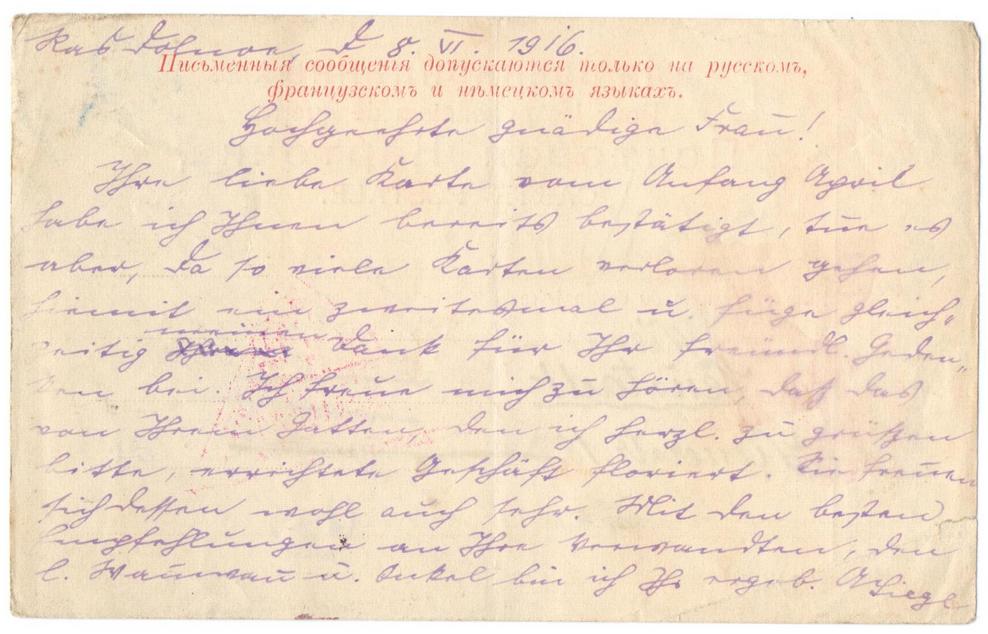 Rasdolnoe, d 8. VI. 1916.
Письменныя сообщенія допускаются только на русскомъ,
французскомъ и нѣмецкомъ языкахъ.
Hochgeehrte gnädige Frau!
Ihre liebe Karte vom Anfang April
habe ich Ihnen bereits bestätigt, tue es
aber, da so viele Karten verloren gehen,
hiemit ein zweitesmal u. füge gleich„
zeitig meinen Dank für Ihr freundl. Geden„
ken bei. Ich freue mich zu hören, daß das
von Ihrem Gatten, den ich herzl. zu grüßen
bitte, errichtete Geschäft floriert. Sie freuen
sich dessen wohl auch sehr. Mit den besten
Empfehlungen an Ihre Verwandten, den
l. Wauwau u. Onkel bin ich Ihr ergeb.